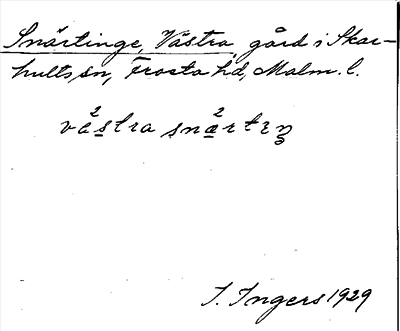 Snärtinge, Västra, gård i Skar-
hults sn, Frosta hd, Malm. l.
västra snärtɪŋ
I. Ingers 1929